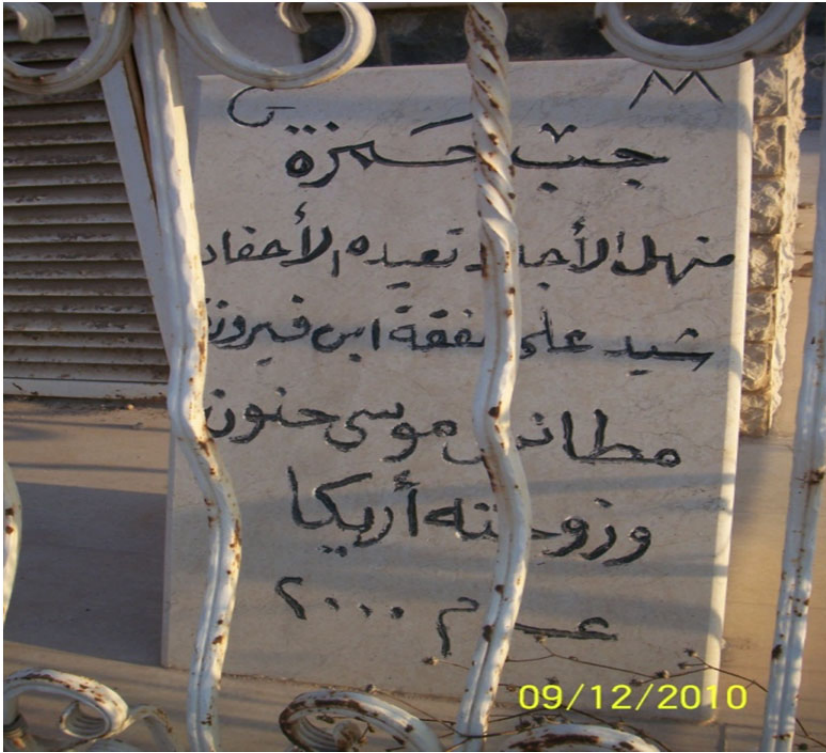 جب حمزة
منهل الأجداد تعيده الأحفاد
شيد على نفقة ابن فيروزة
مطانس موسى حنون
وزوجته أريكا
عام ٢٠٠٠
09/12/2010